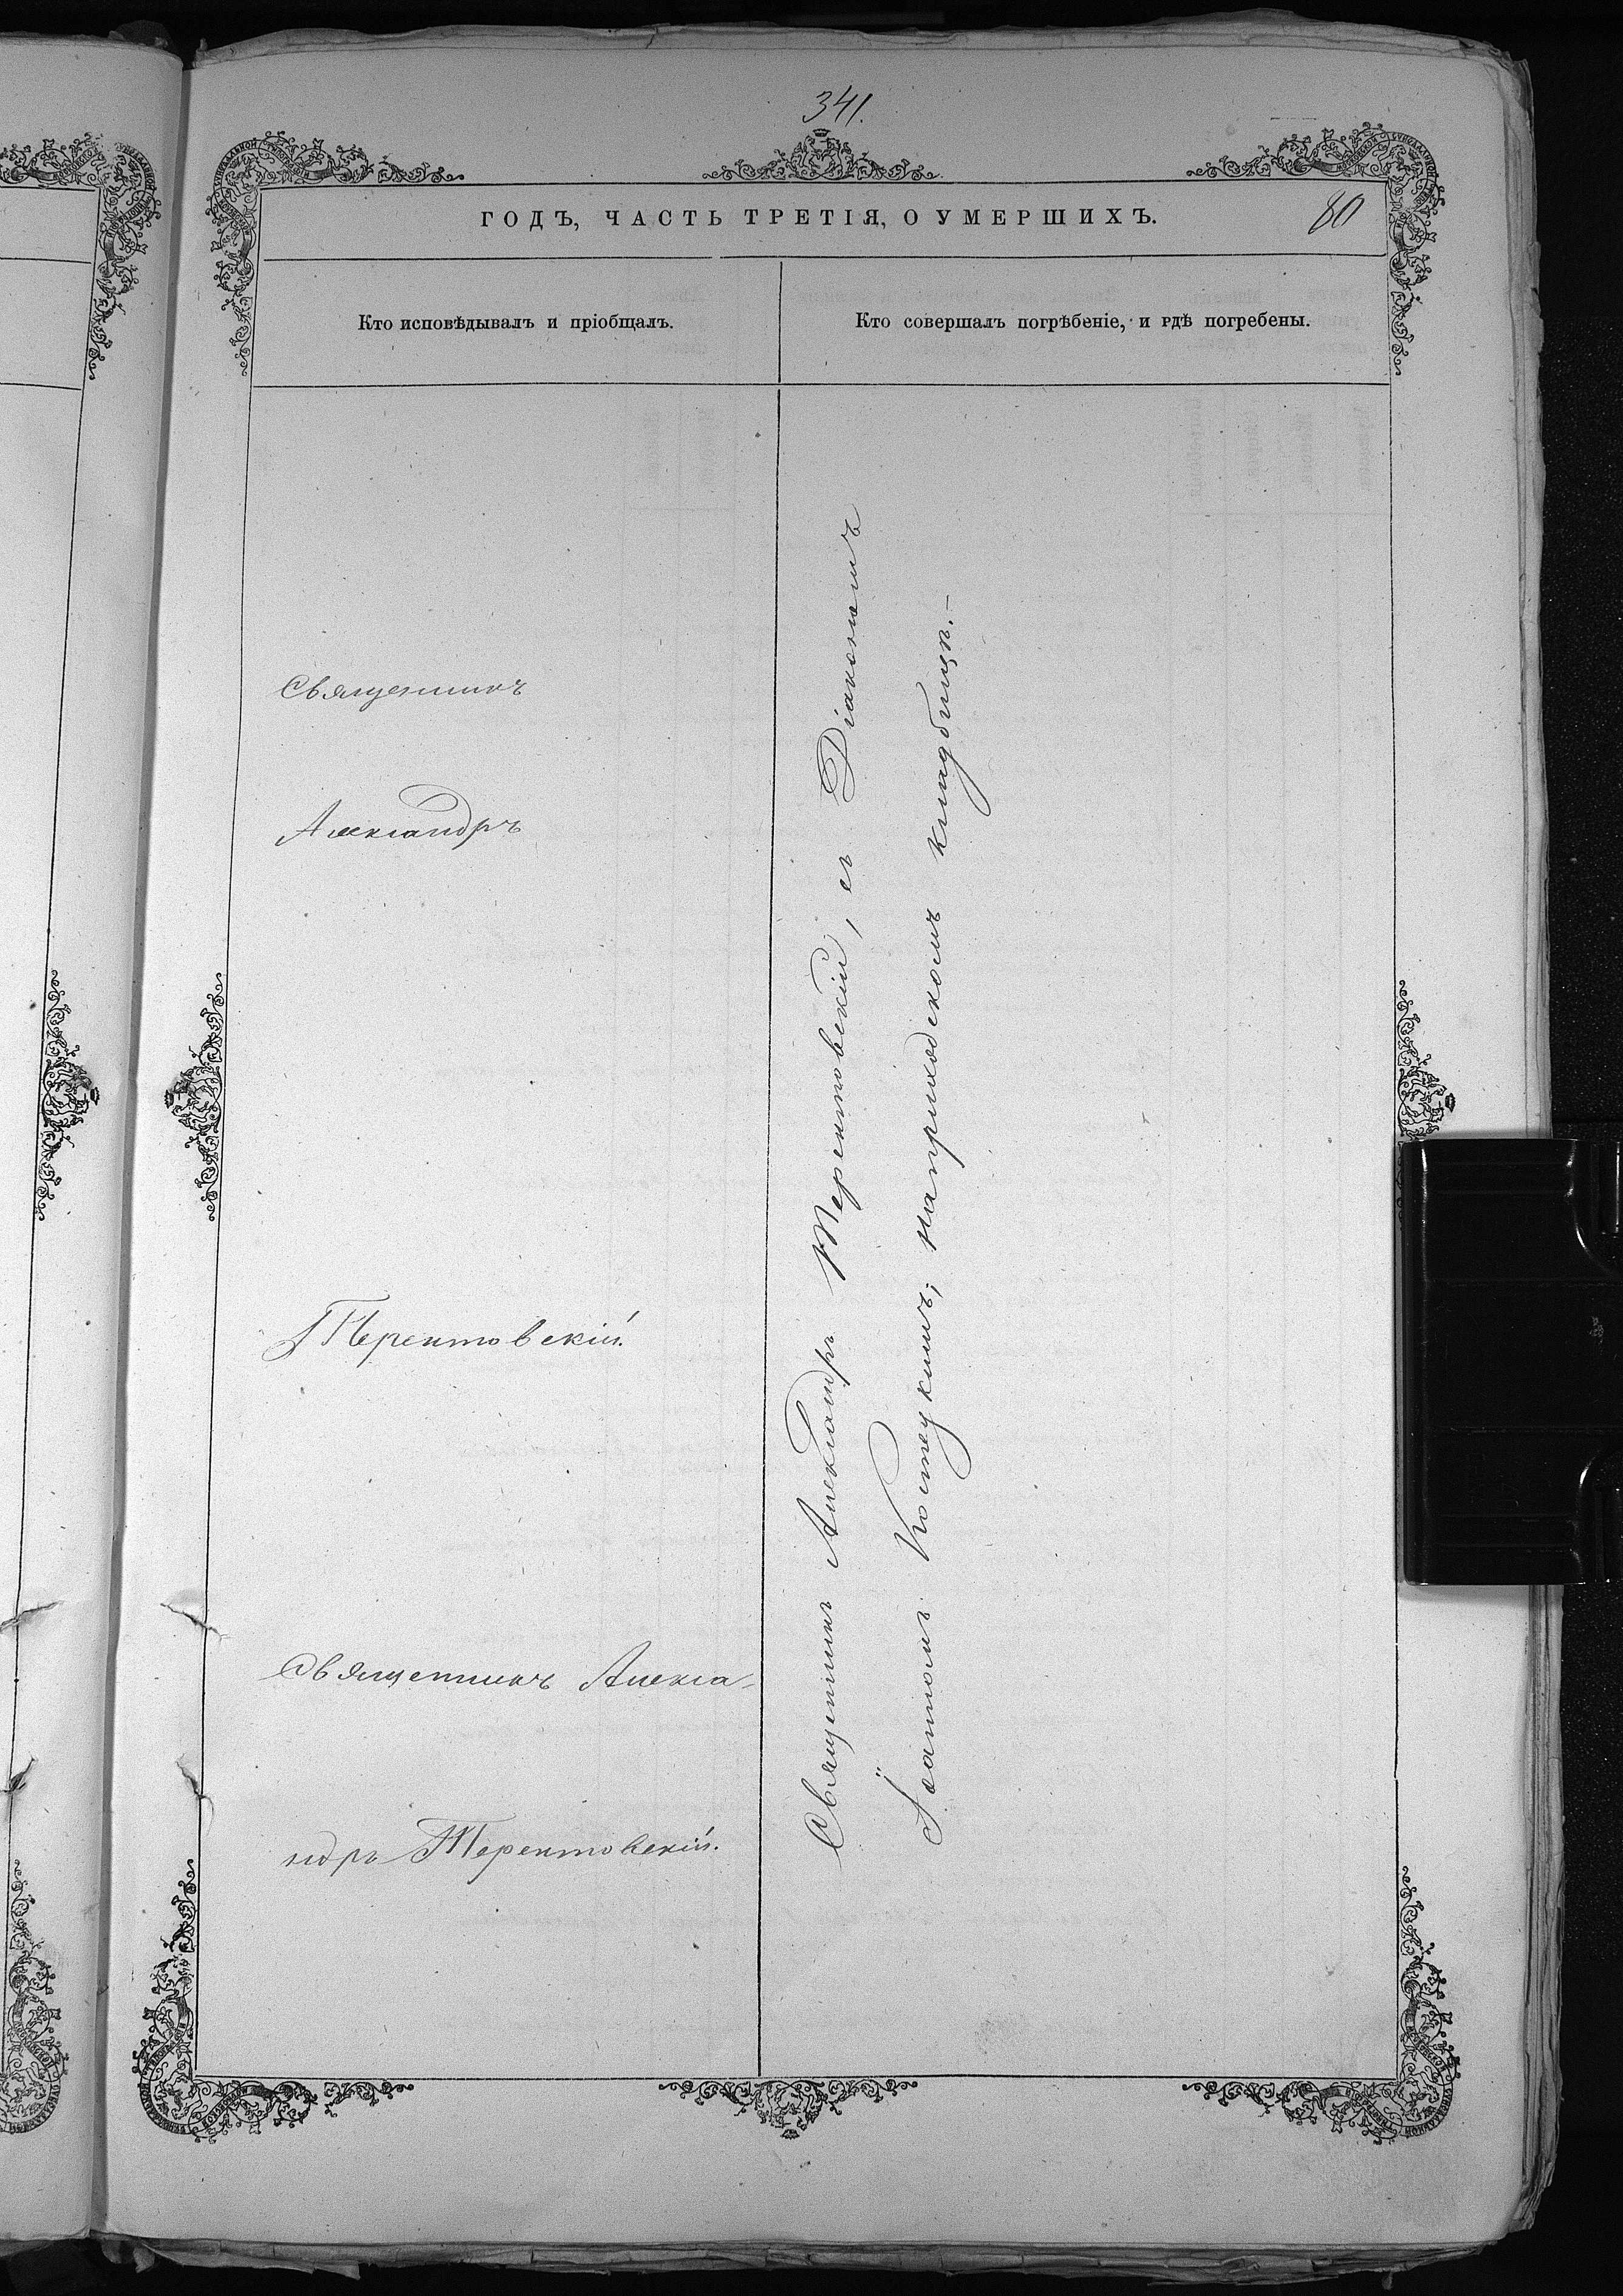 341.
ГОДЪ, ЧАСТЬ ТРЕТІЯ, О УМЕРШИХЪ.
80
Кто исповѣдывалъ и пріобщалъ.
Кто совершалъ погрѣбеніе, и гдѣ погребены.
Священникъ
Александръ
Терентовскій.
Священникъ Алекса-
ндръ Терентовскій.
Священникъ Александръ Терентовскій, съ Діакономъ
Іоанномъ Костецкимъ, на приходскомъ кладбищѣ.—